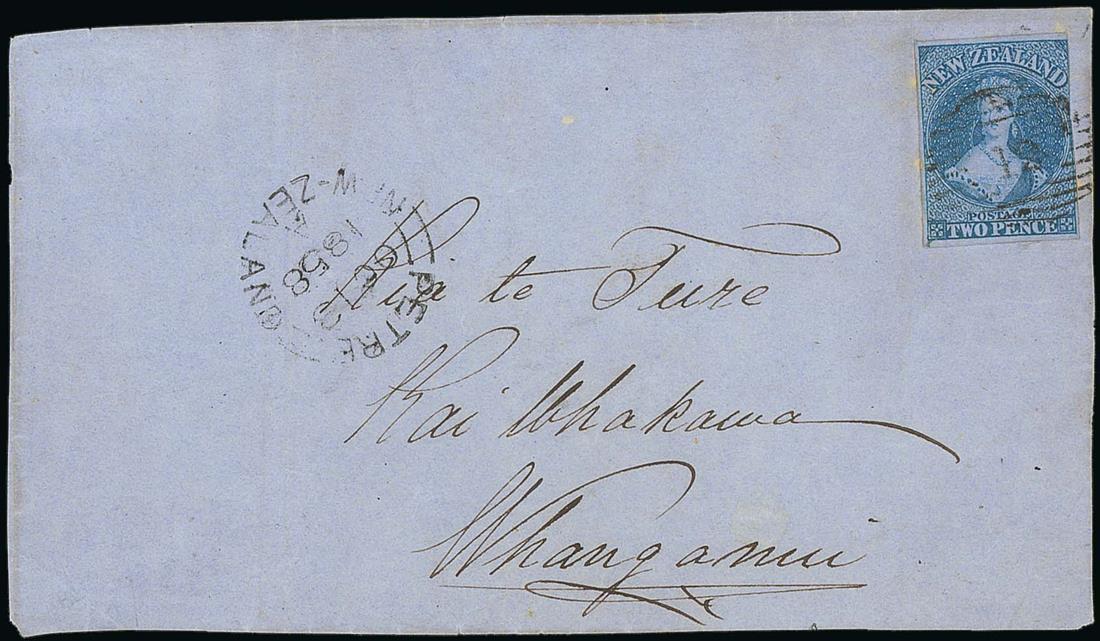 NEW ZEALAND
12
POSTAGE
TWO PENCE
NEW-ZEALAND
1858
OC 12
A
PETRE
te Ture
Kai Whakawa
Whanganui